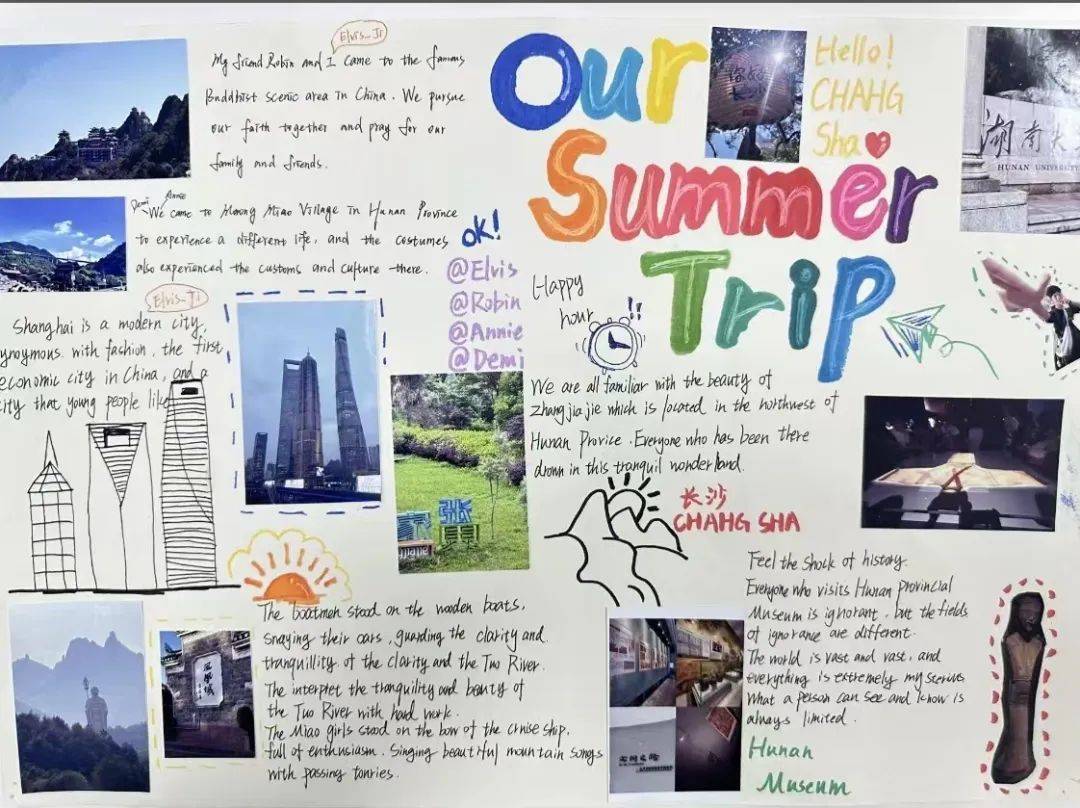 Our
Summer
Trip
Elvis_Ji
My friend Robin and I came to the famous
Buddhist scenic area in China. We pursue
our faith together and pray for our
family and friends.
Demi Annie
We came to Miao Village in Hunan Province
to experience a different life, and the costumes
also experienced the customs and culture there.
ok!
@Elvis
@Robin
@Annie
@Demi
Hello!
CHAHG
Sha
你好
湖南大
HUNAN UNIVERSITY
Elvis-Ji
Shanghai is a modern city,
ynoymous with fashion, the first
economic city in China, and a
city that young people like
Happy
hour
!!
We are all familiar with the beauty of
Zhangjiajie which is located in the northwest of
Hunan Provice. Everyone who has been there
drown in this tranquil wonderland.
张
jiajie
长沙
CHAHG SHA
The boatmen stood on the wooden boats,
swaying their oars, guarding the clarity and
tranquillity of the clarity and the Tuo River.
The interpret the tranquility and beauty of
the Tuo River with hard work.
The Miao girls stood on the bow of the cruise ship,
full of enthusiasm. Singing beautiful mountain songs
with passing tonries.
Feel the shock of history.
Everyone who visits Hunan Provincial
Museum is ignorant, but the fields
of ignorance are different.
The world is vast and vast, and
everything is extremely mysterious
What a person can see and know is
always limited.
Hunan
Museum